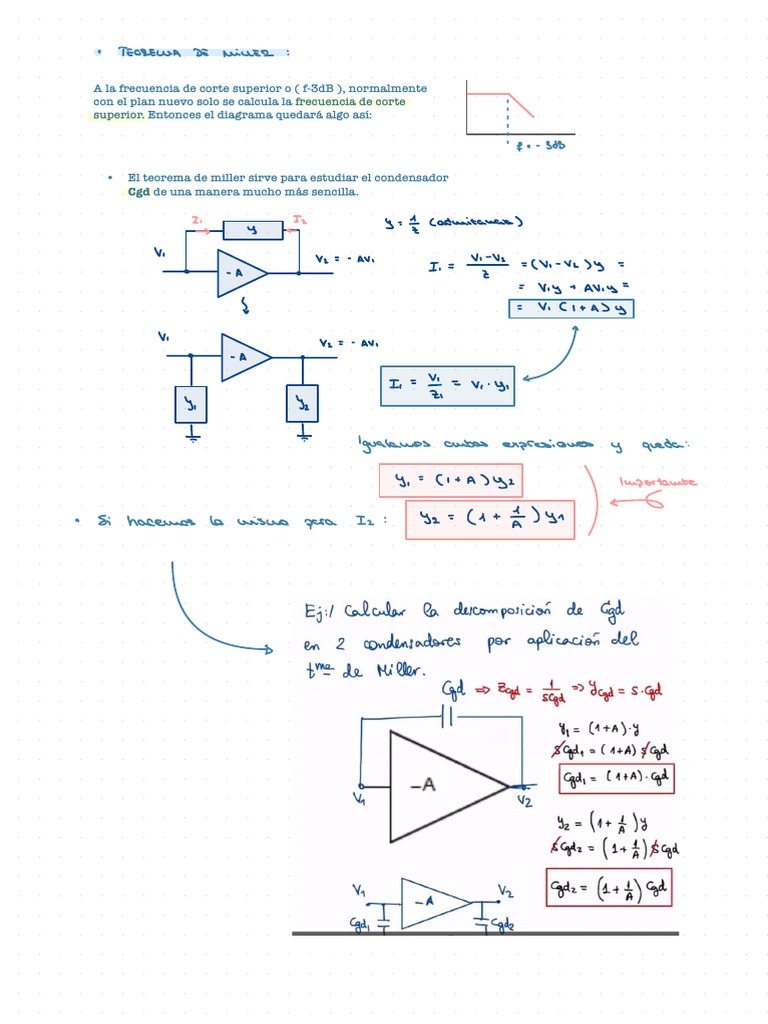 • TEOREMA DE MILLER :
A la frecuencia de corte superior o ( f-3dB ), normalmente
con el plan nuevo solo se calcula la frecuencia de corte
superior. Entonces el diagrama quedará algo así:
f = - 3dB
• El teorema de miller sirve para estudiar el condensador
Cgd de una manera mucho más sencilla.
I₁ y I₂
y = 1/z (admitancia)
V₁ -A V₂ = - AV₁
I₁ = (V₁-V₂)/z = (V₁-V₂)y =
= V₁y + AV₁y =
= V₁ (1+A) y
V₁ -A V₂ = - AV₁
y₁ y₂
I₁ = V₁/z₁ = V₁ · y₁
Igualamos ambas expresiones y queda:
y₁ = (1+A) y₂
Importante
• Si hacemos lo mismo para I₂ : y₂ = (1 + 1/A) y1
Ej:/ Calcular la descomposición de Cgd
en 2 condensadores por aplicación del
tma de Miller.
Cgd ⇒ Zcgd = 1/sCgd ⇒ ycgd = s·Cgd
V₁ -A V₂
y₁ = (1+A)·y
sCgd₁ = (1+A) sCgd
Cgd₁ = (1+A)·Cgd
y₂ = (1 + 1/A) y
sCgd₂ = (1 + 1/A) sCgd
Cgd₂ = (1 + 1/A) Cgd
V₁ -A V₂
Cgd₁ Cgd₂